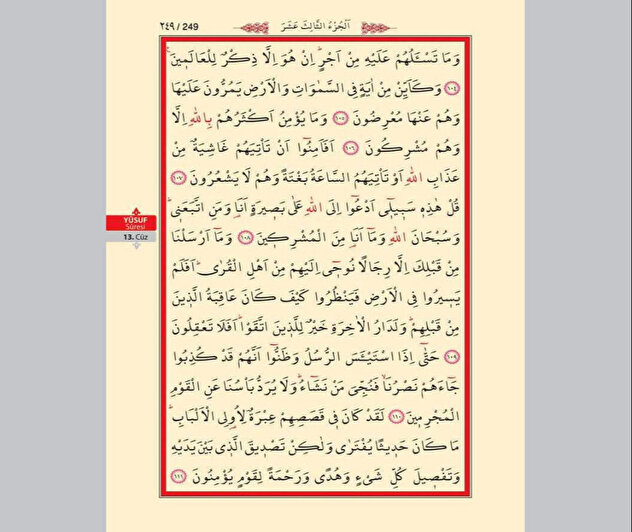 ٢٤٩ / 249
اَلْجُزْءُ الثَّالِثَ عَشَرَ
وَمَا تَسْـَٔلُهُمْ عَلَيْهِ مِنْ اَجْرٍۜ اِنْ هُوَ اِلَّا ذِكْرٌ لِلْعَالَم۪ينَ۟
﴿١٠٤﴾ وَكَاَيِّنْ مِنْ اٰيَةٍ فِي السَّمٰوَاتِ وَالْاَرْضِ يَمُرُّونَ عَلَيْهَا
وَهُمْ عَنْهَا مُعْرِضُونَ ﴿١٠٥﴾ وَمَا يُؤْمِنُ اَكْثَرُهُمْ بِاللّٰهِ اِلَّا
وَهُمْ مُشْرِكُونَ ﴿١٠٦﴾ اَفَاَمِنُٓوا اَنْ تَأْتِيَهُمْ غَاشِيَةٌ مِنْ
عَذَابِ اللّٰهِ اَوْ تَأْتِيَهُمُ السَّاعَةُ بَغْتَةً وَهُمْ لَا يَشْعُرُونَ ﴿١٠٧﴾
قُلْ هٰذِه۪ سَب۪يل۪ٓي اَدْعُٓوا اِلَى اللّٰهِ عَلٰى بَص۪يرَةٍ اَنَا۬ وَمَنِ اتَّبَعَن۪يۜ
وَسُبْحَانَ اللّٰهِ وَمَٓا اَنَا۬ مِنَ الْمُشْرِك۪ينَ ﴿١٠٨﴾ وَمَٓا اَرْسَلْنَا
مِنْ قَبْلِكَ اِلَّا رِجَالًا نُوح۪ٓي اِلَيْهِمْ مِنْ اَهْلِ الْقُرٰىۜ اَفَلَمْ
يَس۪يرُوا فِي الْاَرْضِ فَيَنْظُرُوا كَيْفَ كَانَ عَاقِبَةُ الَّذ۪ينَ
مِنْ قَبْلِهِمْۜ وَلَدَارُ الْاٰخِرَةِ خَيْرٌ لِلَّذ۪ينَ اتَّقَوْاۜ اَفَلَا تَعْقِلُونَ
﴿١٠٩﴾ حَتّٰٓى اِذَا اسْتَيْـَٔسَ الرُّسُلُ وَظَنُّٓوا اَنَّهُمْ قَدْ كُذِبُوا
جَٓاءَهُمْ نَصْرُنَاۙ فَنُجِّيَ مَنْ نَشَٓاءُۜ وَلَا يُرَدُّ بَأْسُنَا عَنِ الْقَوْمِ
الْمُجْرِم۪ينَ ﴿١١٠﴾ لَقَدْ كَانَ ف۪ي قَصَصِهِمْ عِبْرَةٌ لِاُو۬لِي الْاَلْبَابِۜ
مَا كَانَ حَد۪يثًا يُفْتَرٰى وَلٰكِنْ تَصْد۪يقَ الَّذ۪ي بَيْنَ يَدَيْهِ
وَتَفْص۪يلَ كُلِّ شَيْءٍ وَهُدًى وَرَحْمَةً لِقَوْمٍ يُؤْمِنُونَ ﴿١١١﴾
YÛSUF
Sûresi
13. Cüz